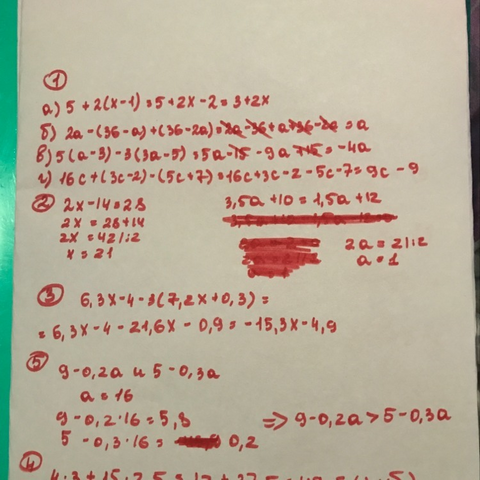 ①
а) 5 + 2(x-1) = 5 + 2x - 2 = 3 + 2x
б) 2a - (36 - a) + (36 - 2a) = 2a - 36 + a + 36 - 2a = a
в) 5(a-3) - 3(3a-5) = 5a - 15 - 9a + 15 = -4a
г) 16c + (3c-2) - (5c+7) = 16c + 3c - 2 - 5c - 7 = 9c - 9
② 2x - 14 = 28
2x = 28 + 14
2x = 42 / : 2
x = 21
3,5a + 10 = 1,5a + 12
2a = 2 / : 2
a = 1
③ 6,3x - 4 - 3(7,2x + 0,3) =
= 6,3x - 4 - 21,6x - 0,9 = -15,3x - 4,9
⑤
9 - 0,2a и 5 - 0,3a
a = 16
9 - 0,2 · 16 = 5,8 => 9 - 0,2a > 5 - 0,3a
5 - 0,3 · 16 = 0,2
④